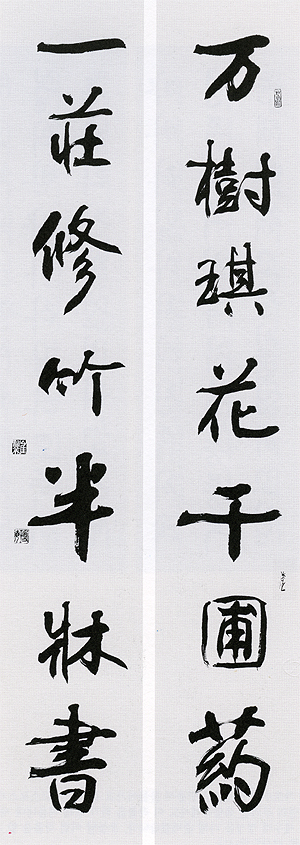 万樹琪花千圃葯
一莊修竹半牀書